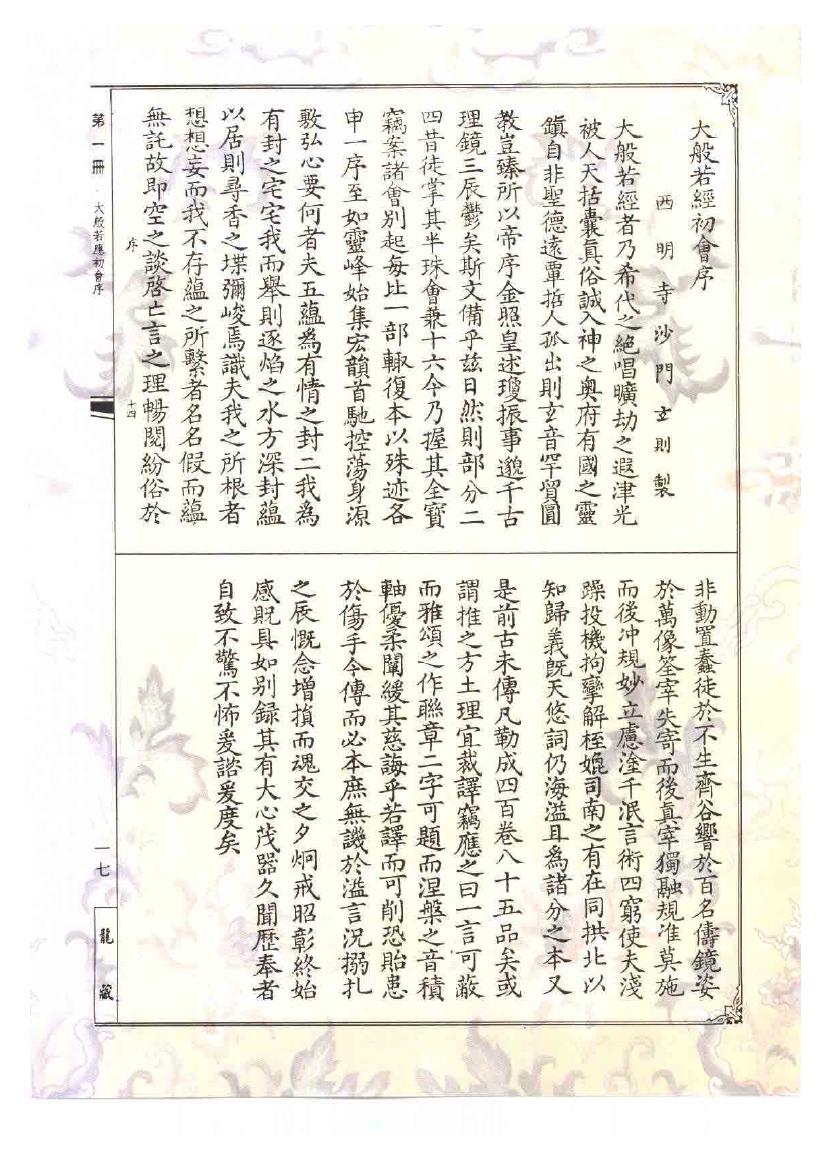 大般若經初會序
西明寺沙門玄則製
大般若經者乃希代之絕唱曠劫之遐津光
被人天括囊眞俗誠入神之奧府有國之靈
鎭自非聖德遠覃哲人孤出則玄音罕貿圓
教豈臻所以帝序金照皇述瓊振事邈千古
理鏡三辰鬱矣斯文備乎兹日然則部分二
四昔徒掌其半珠會兼十六今乃握其全寶
竊案諸會別起每比一部輙復本以殊迹各
申一序至如靈峰始集宏韻首馳控蕩身源
敷弘心要何者夫五蘊爲有情之封二我爲
有封之宅宅我而舉則逐焰之水方深封蘊
以居則尋香之堞彌峻焉識夫我之所根者
想想妄而我不存蘊之所繫者名名假而蘊
無託故即空之談啓亡言之理暢閱紛俗於
非動置蠢徒於不生齊谷響於百名儔鏡姿
於萬像筌宰失寄而後眞宰獨融規准莫施
而後冲規妙立慮淦千泯言術四窮使夫淺
躁投機拘攣解桎媲司南之有在同拱北以
知歸義既天悠詞仍海溢且爲諸分之本又
是前古未傳凡勒成四百卷八十五品矣或
謂推之方土理宜裁譯竊應之曰一言可蔽
而雅頌之作聯章二字可題而涅槃之音積
軸優柔闡緩其慈誨乎若譯而可削恐貽患
於傷手今傳而必本庶無譏於溢言況搦扎
之辰慨念增損而魂交之夕炯戒昭彰終始
感貺具如別録其有大心茂器久聞歷奉者
自致不驚不怖爰諮爰度矣
第一冊
大般若應初會序
序
十四
一七
龍藏